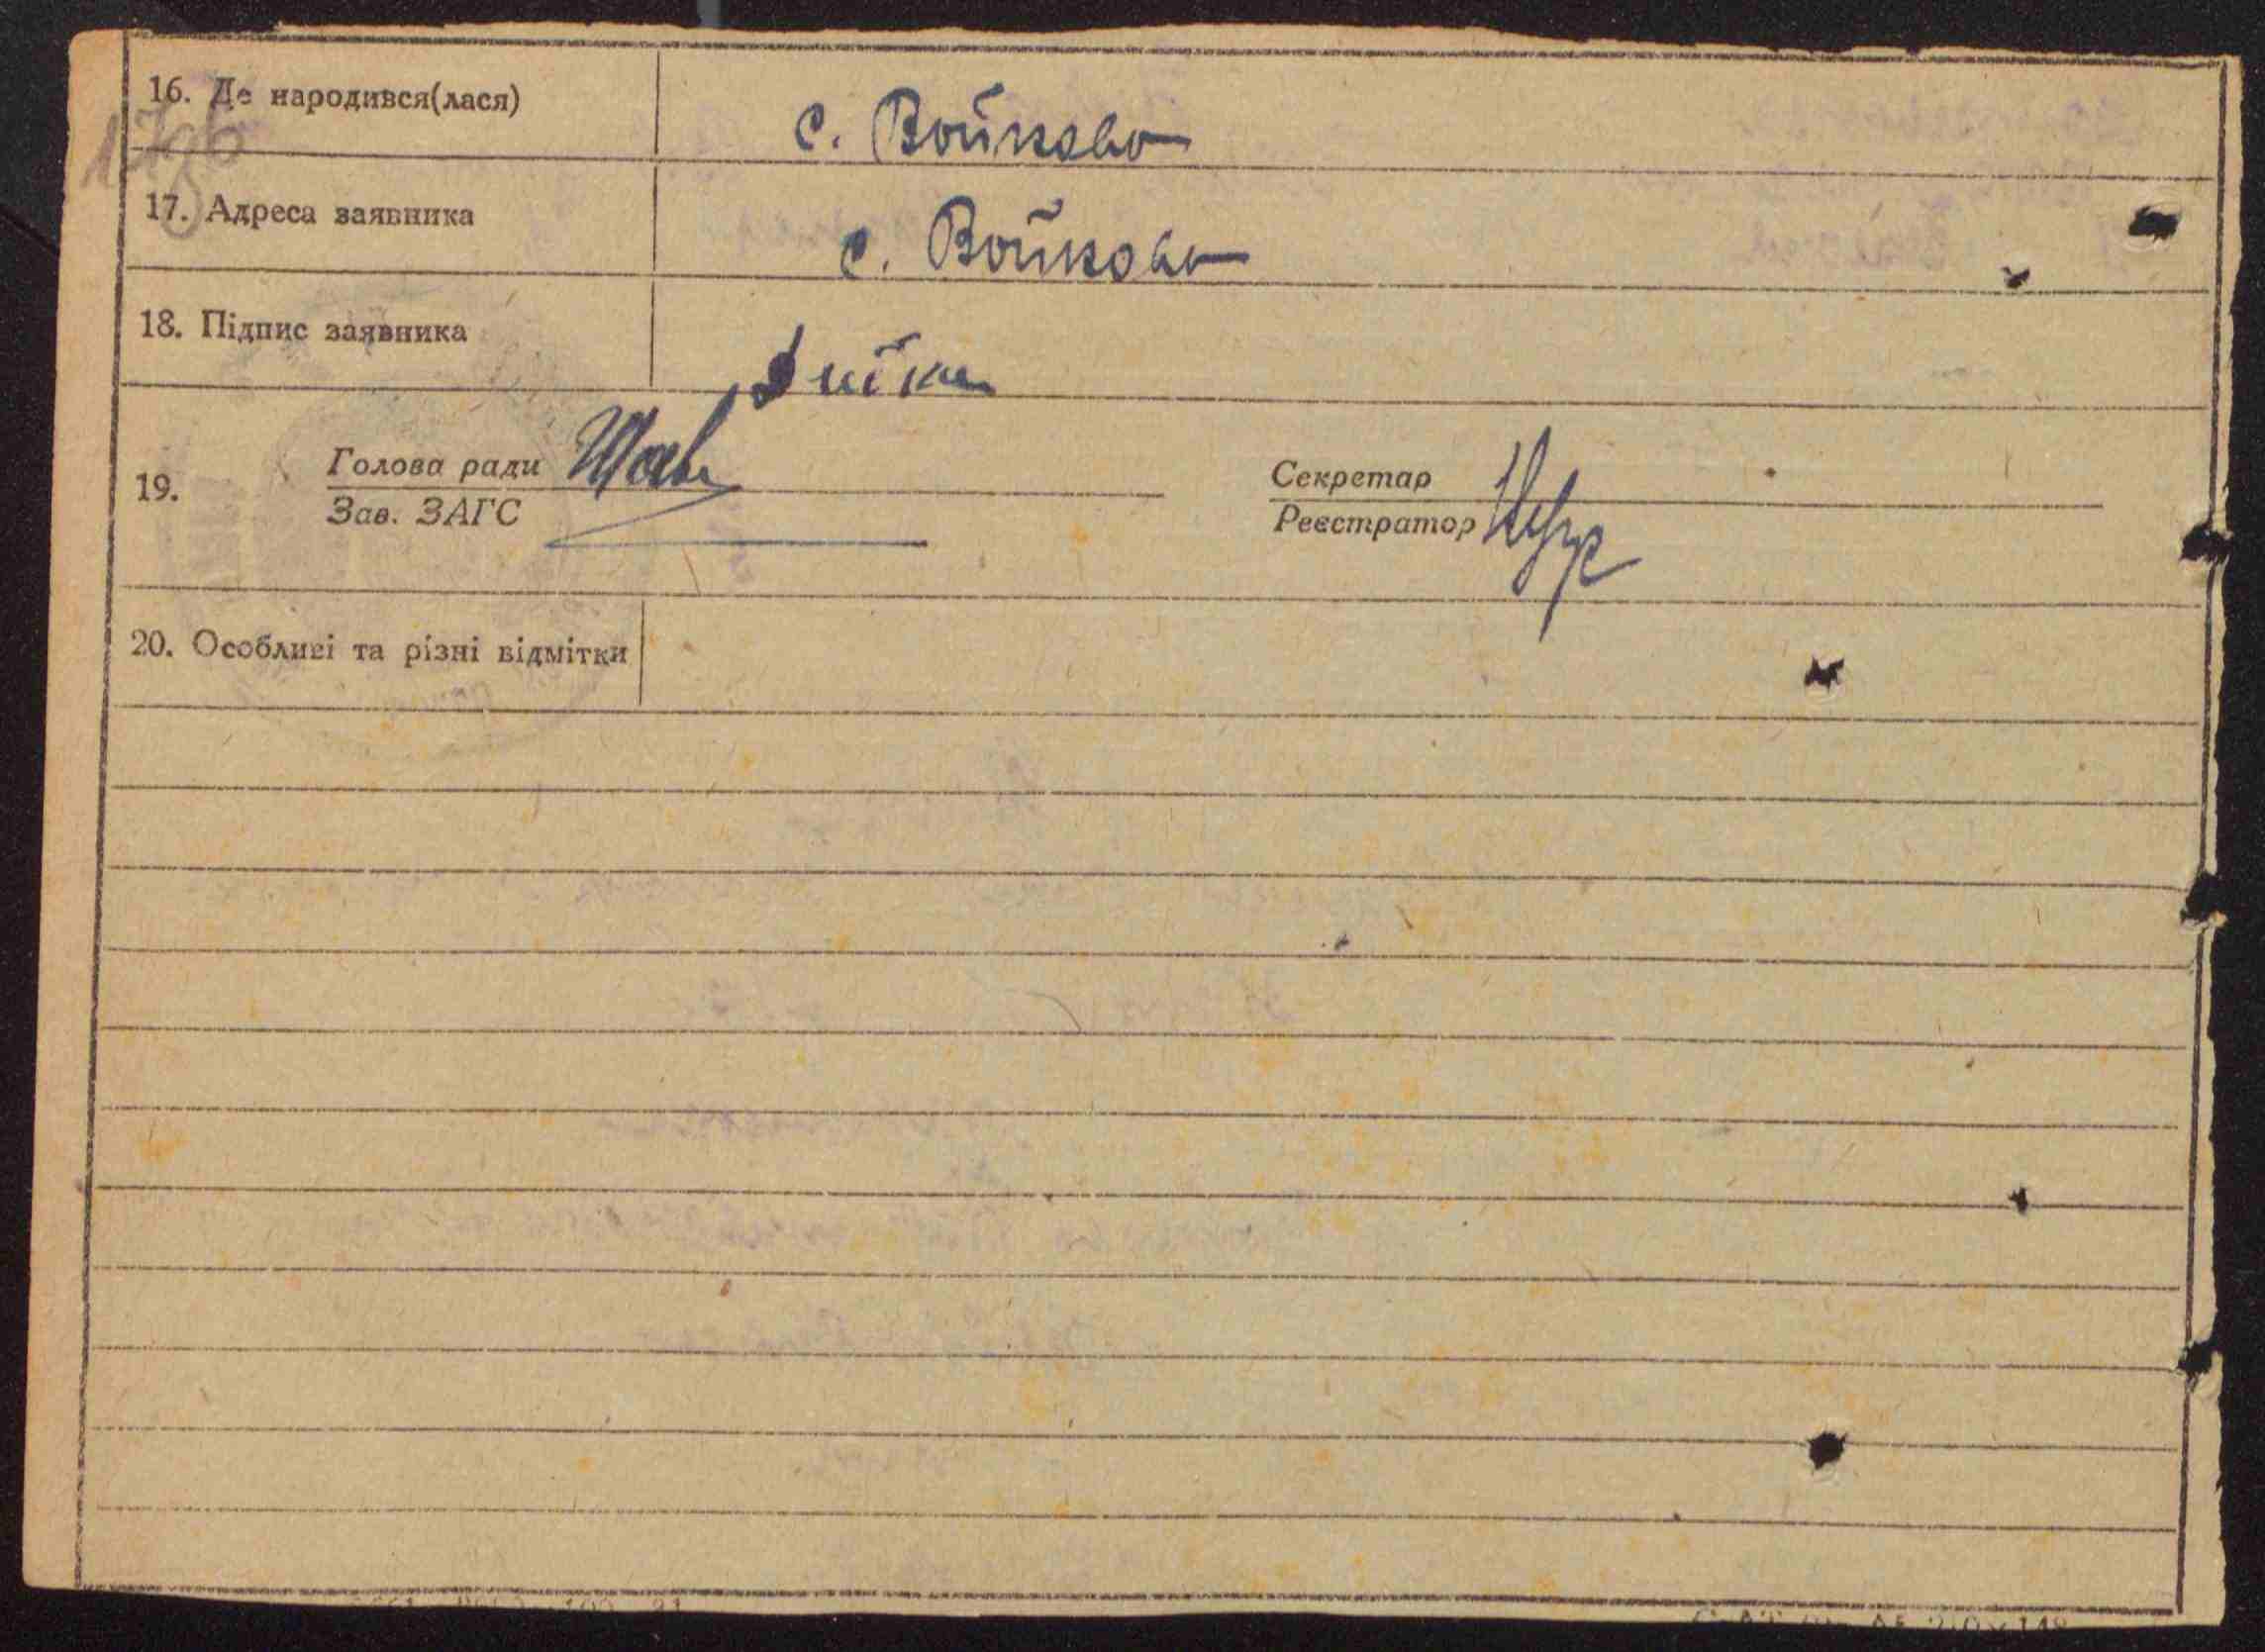 16. Де народився(лася)
с. Войково
17. Адреса заявника
с. Войково
18. Підпис заявника
19.
Голова ради
Зав. ЗАГС
Секретар
Реєстратор
20. Особливі та різні відмітки